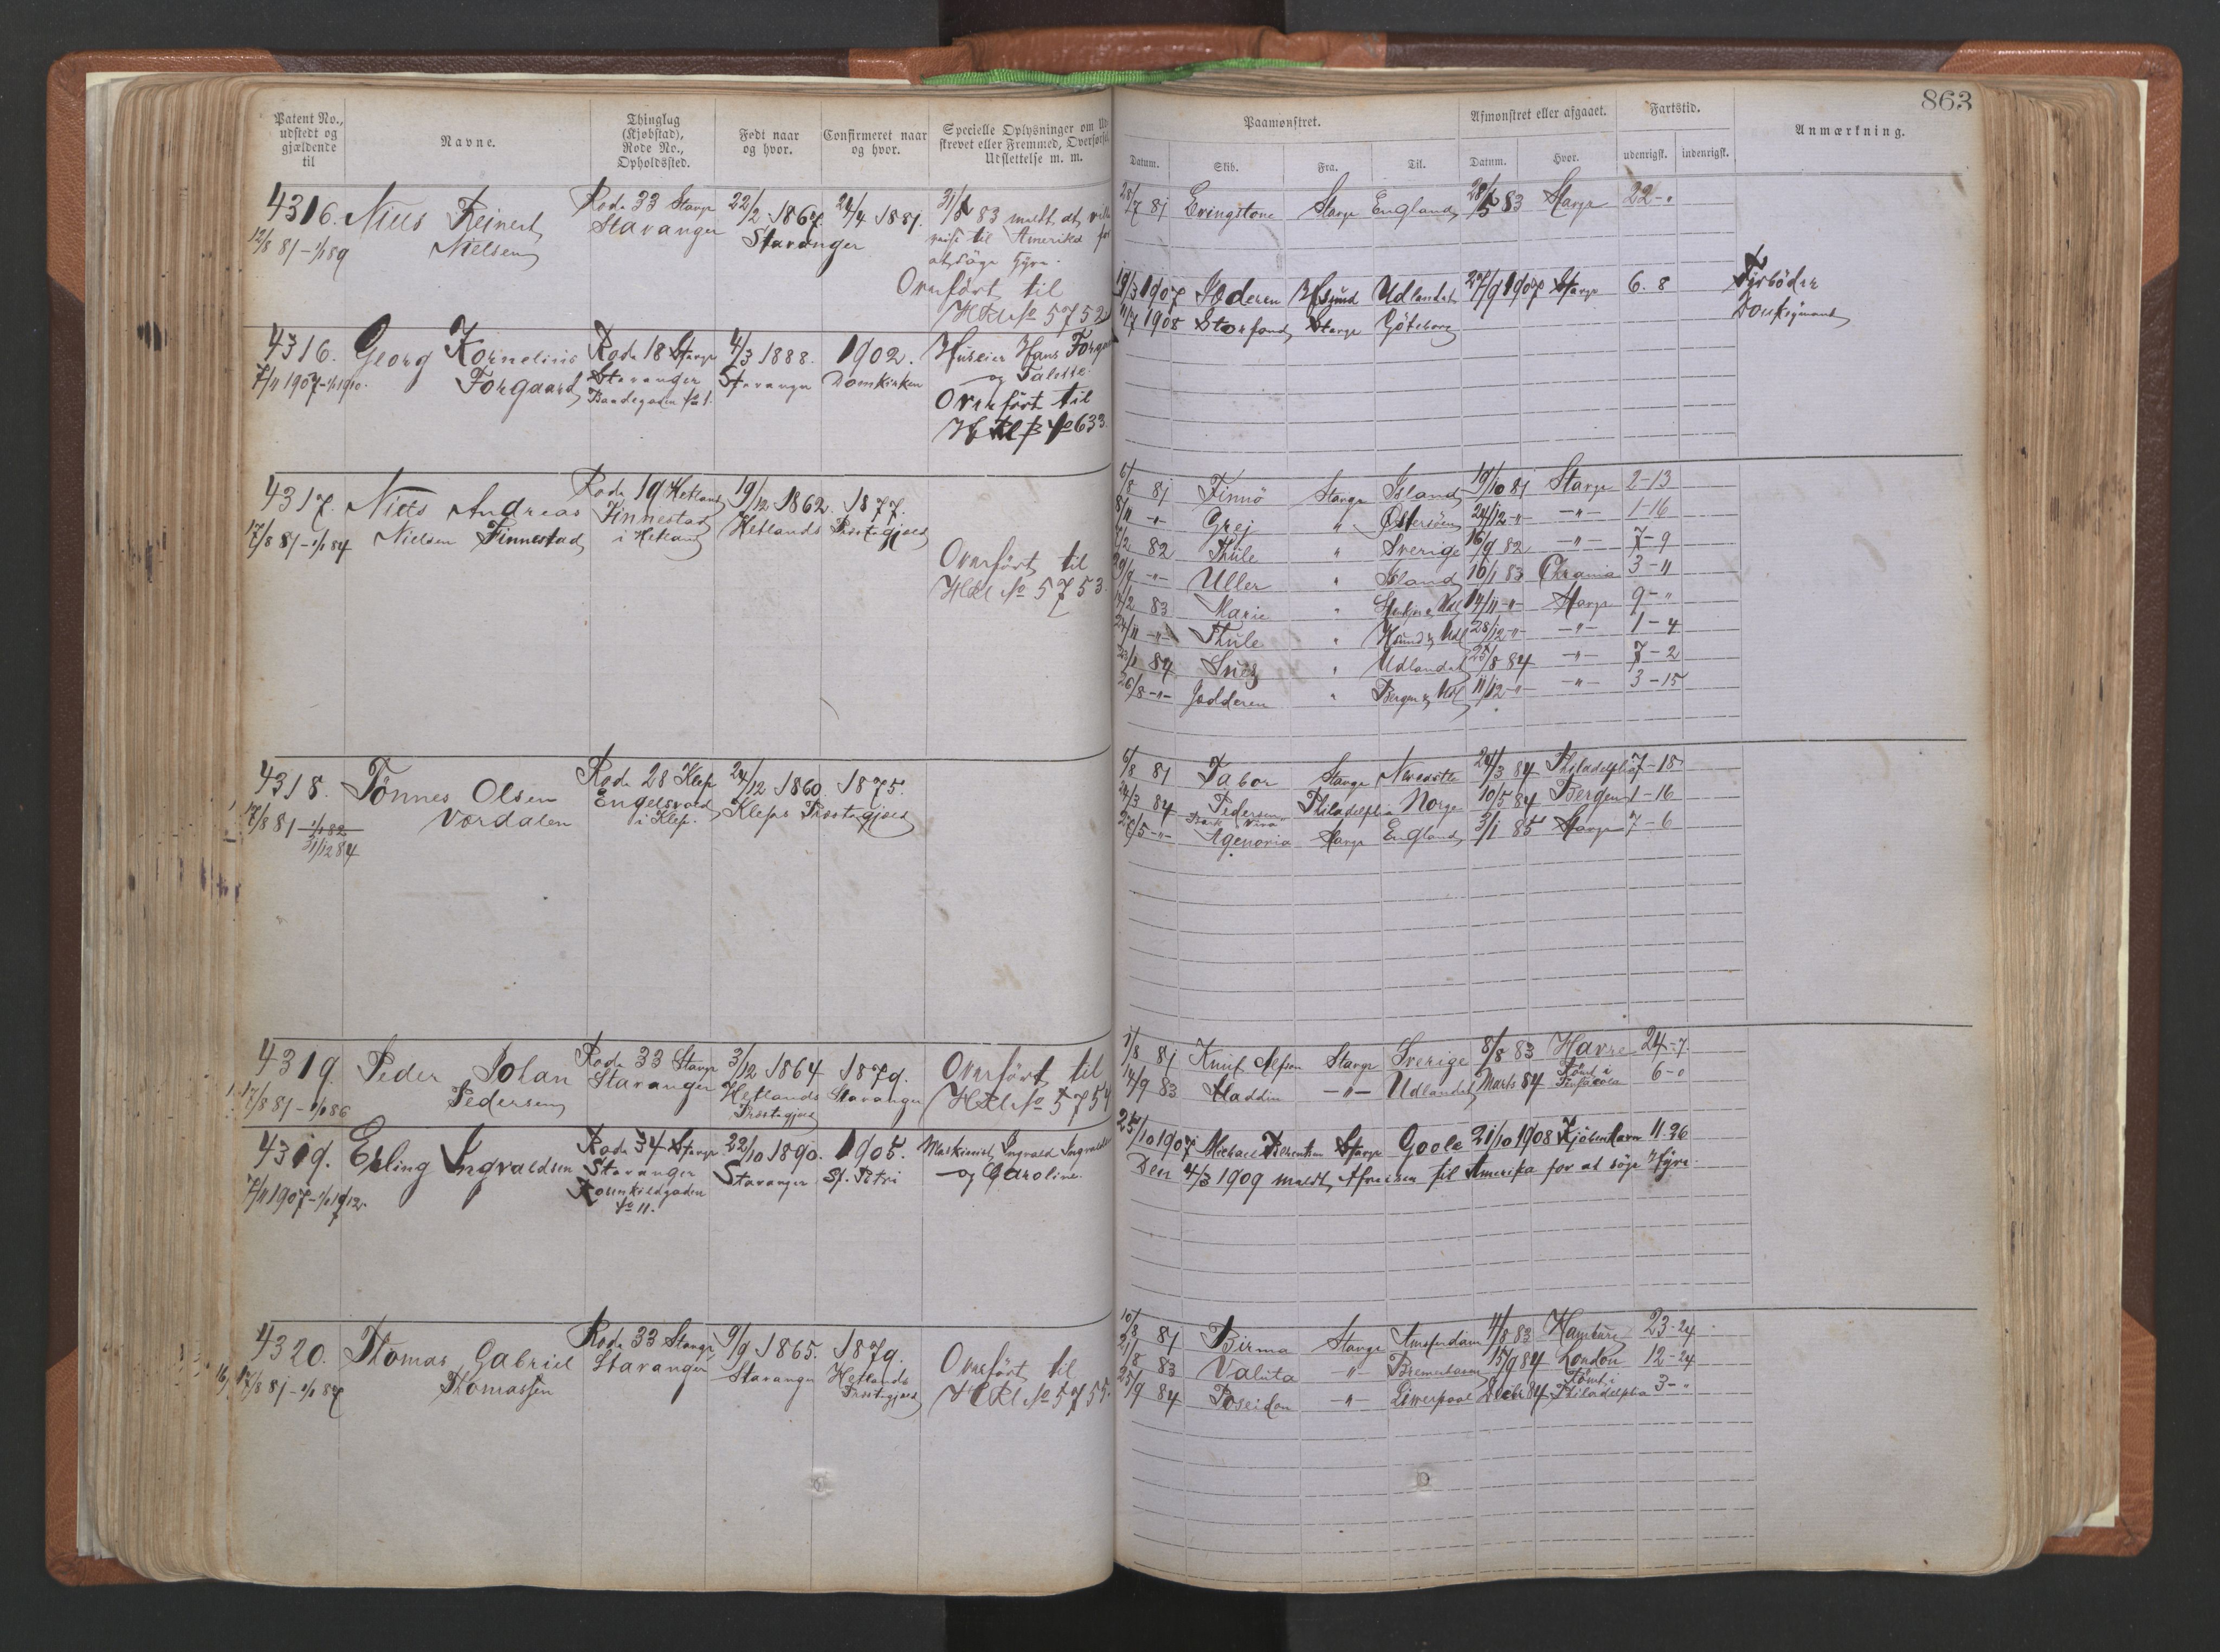 863
Patent No., udstedt og gjældende til
Navne.
Thinglag (Kjøbstad), Rode No., Opholdssted.
Født naar og hvor.
Confirmeret naar og hvor.
Specielle Oplysninger om Ud-
skrevet eller Fremmed, Overførsel,
Udslettelse m. m.
Paamønstret.
Datum. Skib. Fra. Til.
Afmønstret eller afgaaet.
Datum. Hvor.
Fartstid.
udenrigsk. indenrigsk.
Anmærkning.
4316. Niels Reinert Rode 33 Stavgr 22/2 1867. 24/4 1881.
12/8 81 – 1/1 89 Nielsen Stavanger Stavanger
31/8 83 meldt at ville
reise til Amerika for
at søge Hyre.
Overført til
HRl No 5752
28/7 81 Stavgr England 28/5 83 Stavgr 22-"
4316. Georg Kornelius Rode 18 Stavgr 4/3 1888. 1902.
7/11 1907 – 1/1 1910. Forgaard Stavanger Stavanger Domkirken
No 1.
Huseier Hans Forgaard
og Talette.
Overført til
No 633
19/3 1907 Jæderen Udlandet 27/9 1907 Stavgr 6. 8 Fyrbøder
11/7 1908 Storfond Stavgr Göteborg Donkeymand
4317. Niels Andreas Rode 19 Hetland 19/12 1862. 1877.
17/8 81 – 1/1 84 Nielsen Finnestad Finnestad Hetlands Præstegjæld
i Hetland
Overført til
HRl No 5753.
6/8 81 Finnö Stavgr Island 19/10 81 Stavgr 2-13
8/11 -"- Grej " Østersøen 24/12 -"- -"- 1-16
82 Thule " Sverige 16/9 82 -"- 7-9
29/9 -"- Uller " Island 10/1 83 Chrania 3-11
83 Marie " 14/11 -"- Stavgr 9-"
24/11 -"- Thule " 28/12 -"- -"- 1-4
84 " Udlandet 25/8 84 -"- 7-2
26/8 -"- Jædderen " Bergen & Udl 11/12 -"- -"- 3-15
4318. Tönnes Olsen Rode 28 Klep 24/12 1860. 1875.
17/8 81 – 1/1 82 Vordalen Engelsvold Kleps Præstegjæld
31/12 84 i Klep.
6/8 81 Tabor Stavgr Newcastle 24/3 84 Philadelphia 7-18
24/3 84 Pedersen Philadelphia Norge 10/5 84 Bergen 1-16
27/5 -"- Agenoria Stavgr England 3/1 85 Stavgr 7-6
4319. Peder Johan Rode 33 Stavgr 3/12 1864 1879.
17/8 81 – 1/1 86 Pedersen Stavanger Hetlands Stavanger
Præstegjæld
Overført til
HRl No 5754
1/8 81 Stavgr Sverige 8/8 83 Havre 24-7
14/9 83 Aladdin -"- Udlandet Marts 84 6-0
4319. Erling Ingvaldsen Rode 34 Stavgr 22/10 1890. 1905.
7/11 1907 – 1/1 1912. Stavanger Stavanger St. Petri
Rosenkildgaden
No 11.
Maskinist Ingvald Ingvaldsen
og Caroline.
25/10 1907 Michael Stavgr Goole 21/10 1908 Kjöbenhavn 11.26
Den 4/3 1909 meldt Afreisen til Amerika for at söge Hyre.
4320. Thomas Gabriel Rode 33 Stavgr 9/9 1865. 1879.
17/8 81 – 1/1 87 Thomassen Stavanger Stavanger Hetlands
Præstegjæld
Overført til
HRl No 5755.
10/8 81 Birma Stavgr Amsterdam 4/8 83 Hamburg 23-24
21/8 83 Valuta -"- Bremerhaven 15/9 84 London 12-24
25/9 84 Poseidon -"- Liverpool Decbr 84 Rømt i Philadelphia 3-"